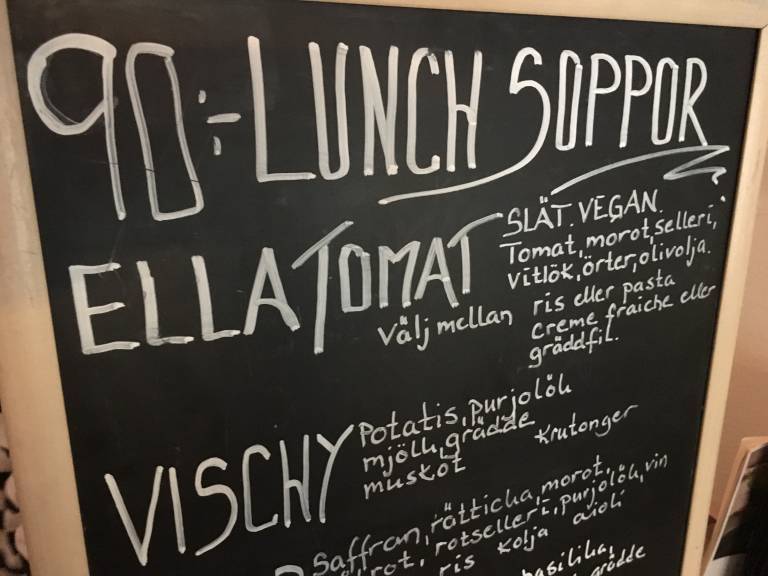 90:- LUNCH SOPPOR
ELLA TOMAT
SLÄT. VEGAN.
Tomat, morot, selleri,
vitlök, örter, olivolja.
välj mellan ris eller pasta
creme fraiche eller
gräddfil.
VISCHY
Potatis, purjolök
mjölk, grädde
muskot
krutonger
Saffran, rätticka, morot,
rotselleri, purjolök, vin
ris kolja aioli
basilika,
grädde